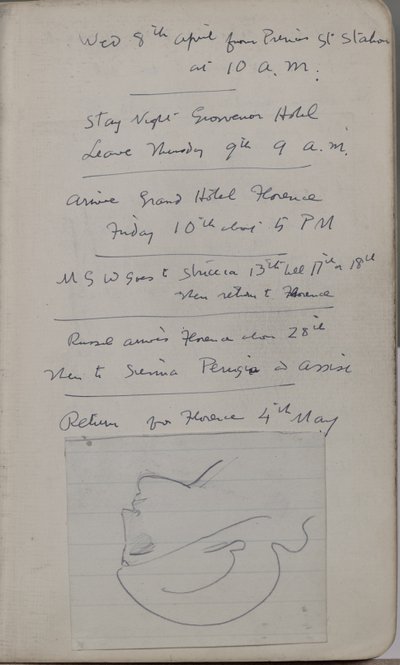 Wed 8th April from Princes St Station
at 10 A.M.
Stay Night Grosvenor Hotel
Leave Thursday 9th 9 A.M.
Arrive Grand Hotel Florence
Friday 10th about 5 PM
M G W Goes to 13th till 17th or 18th
then return to Florence
Russel arrives Florence about 28th
then to Sienna Perugia & Assisi
Return for Florence 4th May